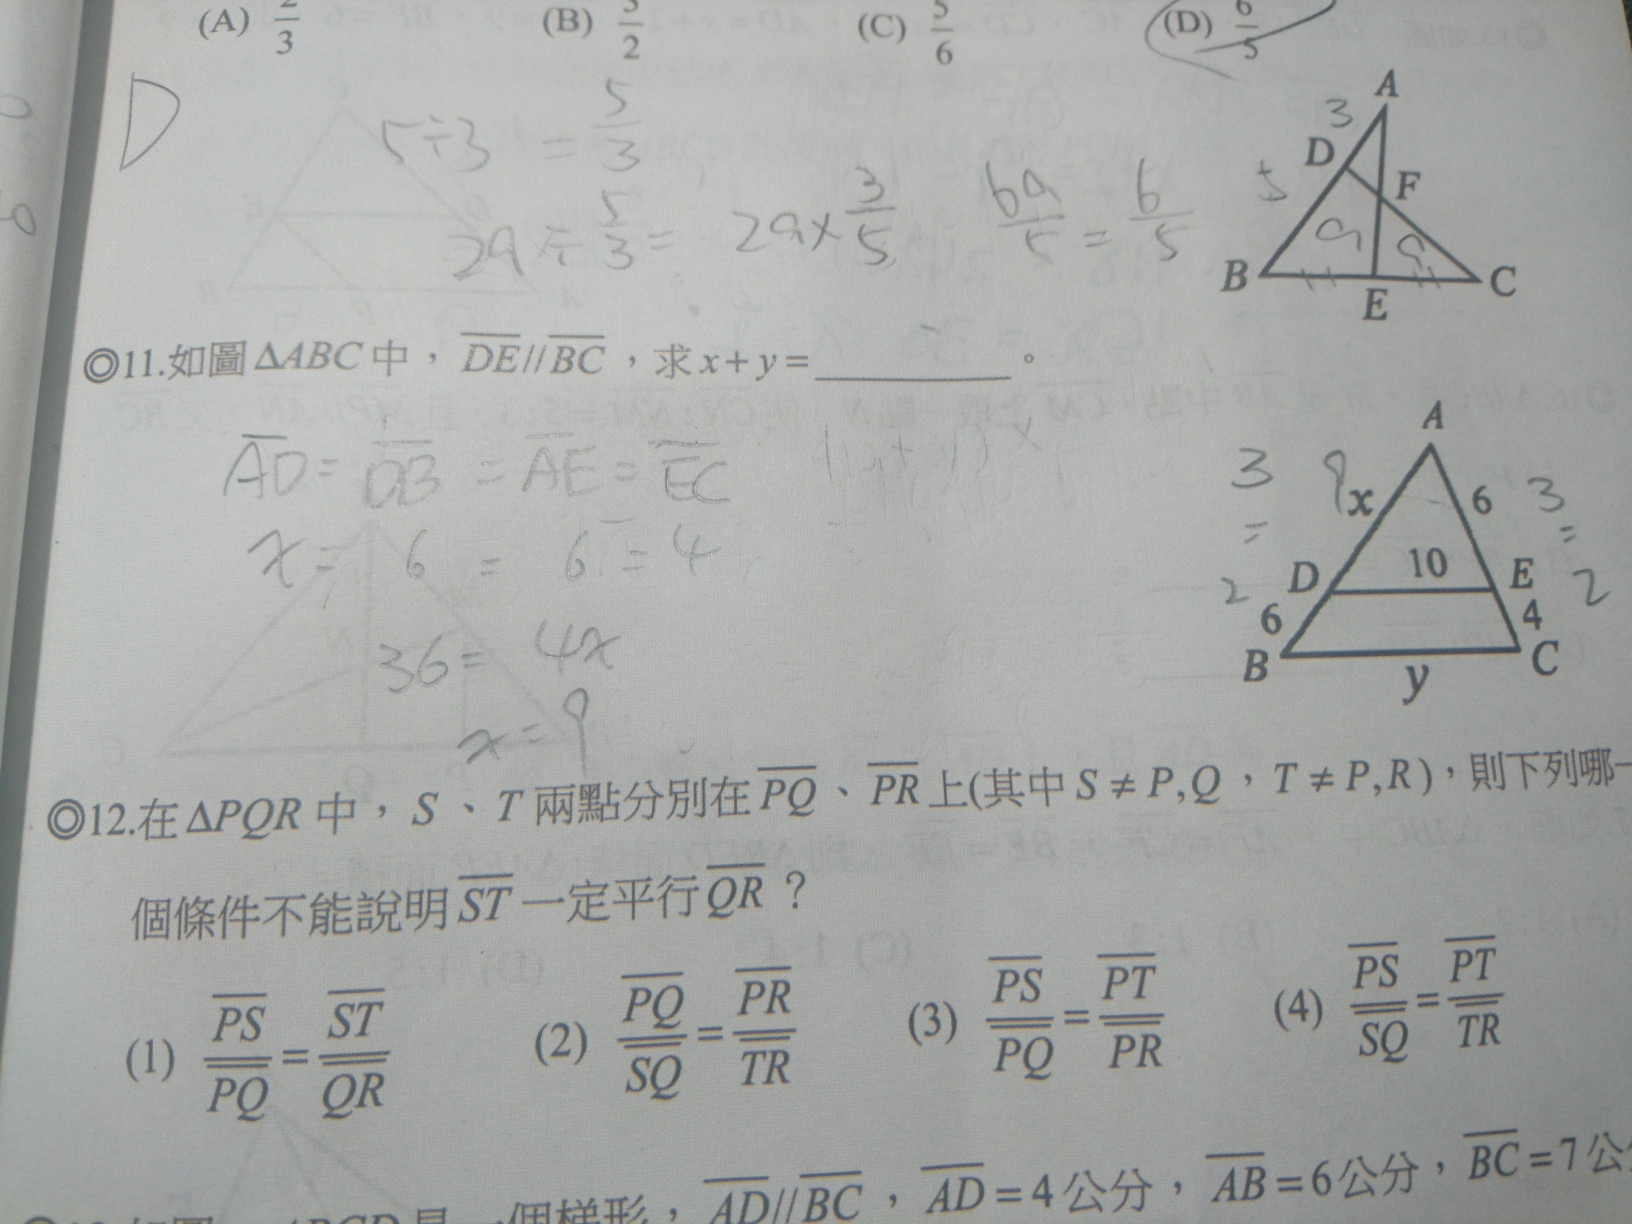 (A) 2/3 (B) 3/2 (C) 5/6 (D) 6/5
D
5÷3 = 5/3
2a ÷ 5/3 = 2a × 3/5 6a/5 = 6/5
A
3
D
5
F
a a
B E C
◎11.如圖ΔABC中，DE//BC，求x+y=________。
AD = DB = AE = EC
x = 6 = 6 = 4
36 = 4x
x = 9
A
3 9 x 6 3
= =
D 10 E
2 6 4 2
B y C
◎12.在ΔPQR中，S、T兩點分別在PQ、PR上(其中S≠P,Q，T≠P,R)，則下列哪一
個條件不能說明ST一定平行QR？
(1) PS/PQ = ST/QR (2) PQ/SQ = PR/TR (3) PS/PQ = PT/PR (4) PS/SQ = PT/TR
是一個梯形，AD//BC，AD=4公分，AB=6公分，BC=7公